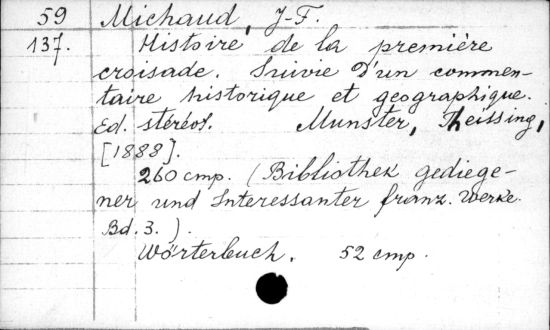 59 Michaud, J-F.
137. Histoire de la première
croisade. Suivie d'un commen-
taire historique et geographique.
Ed. stéréos. Munster, Theissing,
[1888].
260 cmp. (Bibliothek gediege-
ner und Interessanter franz. Werke.
Bd. 3.).
Wörterbuch. 52 cmp.